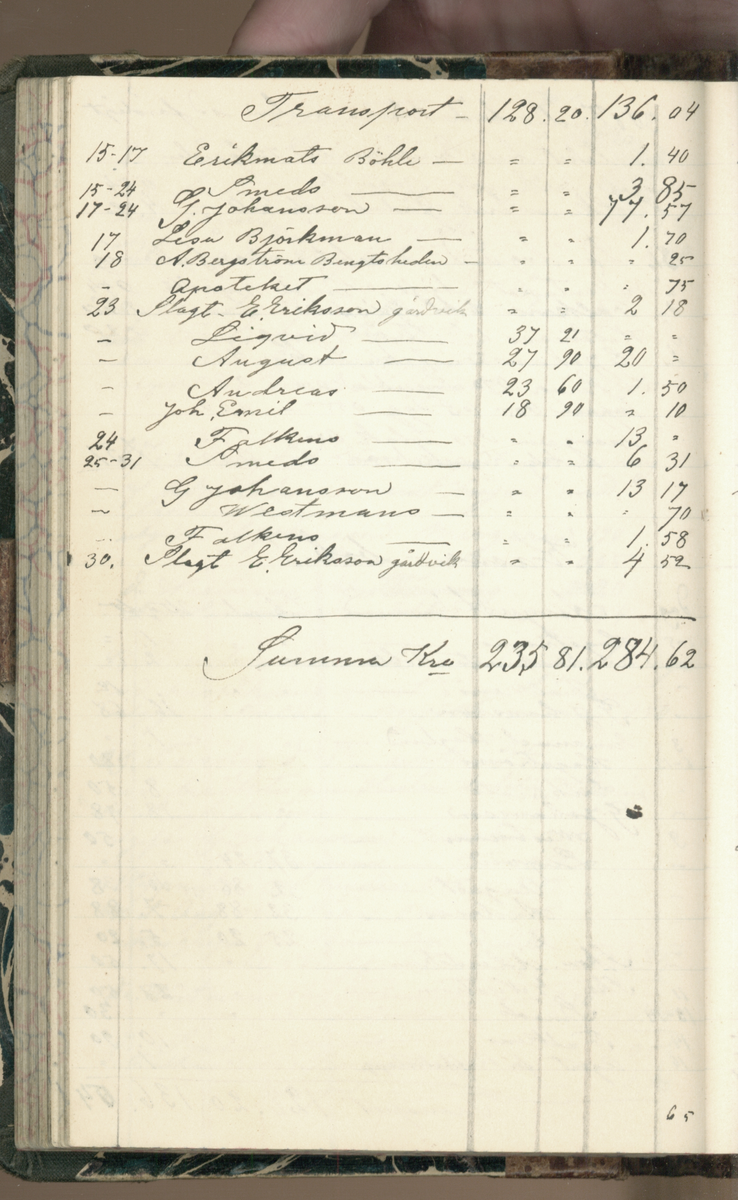 Transport - 128. 20. 136. 04
15-17 Erikmats Böhle — " " 1. 40
15-24 Smeds — " " 3 85
17-24 G. Johansson — " " 77. 57
17 Lisa Björkman — " " 1. 70
18 A. Bergström Bengtsheden - " " " 25
- Apoteket — " " " 75
23 Slagt. E. Eriksson gärdvik " " 2 18
- Liqvid — 37 21 " "
- August — 27 90 20 "
- Andreas — 23 60 1. 50
- Joh. Emil — 18 90 " 10
24 Falkens — " " 13 "
25-31 Smeds — " " 6 31
- G Johansson — " " 13 17
- Westmans — " " " 70
- Falkens — " " 1. 58
30. Slagt E. Eriksson gärdvik " " 4 52
Summa Kro 235 81. 284. 62
65